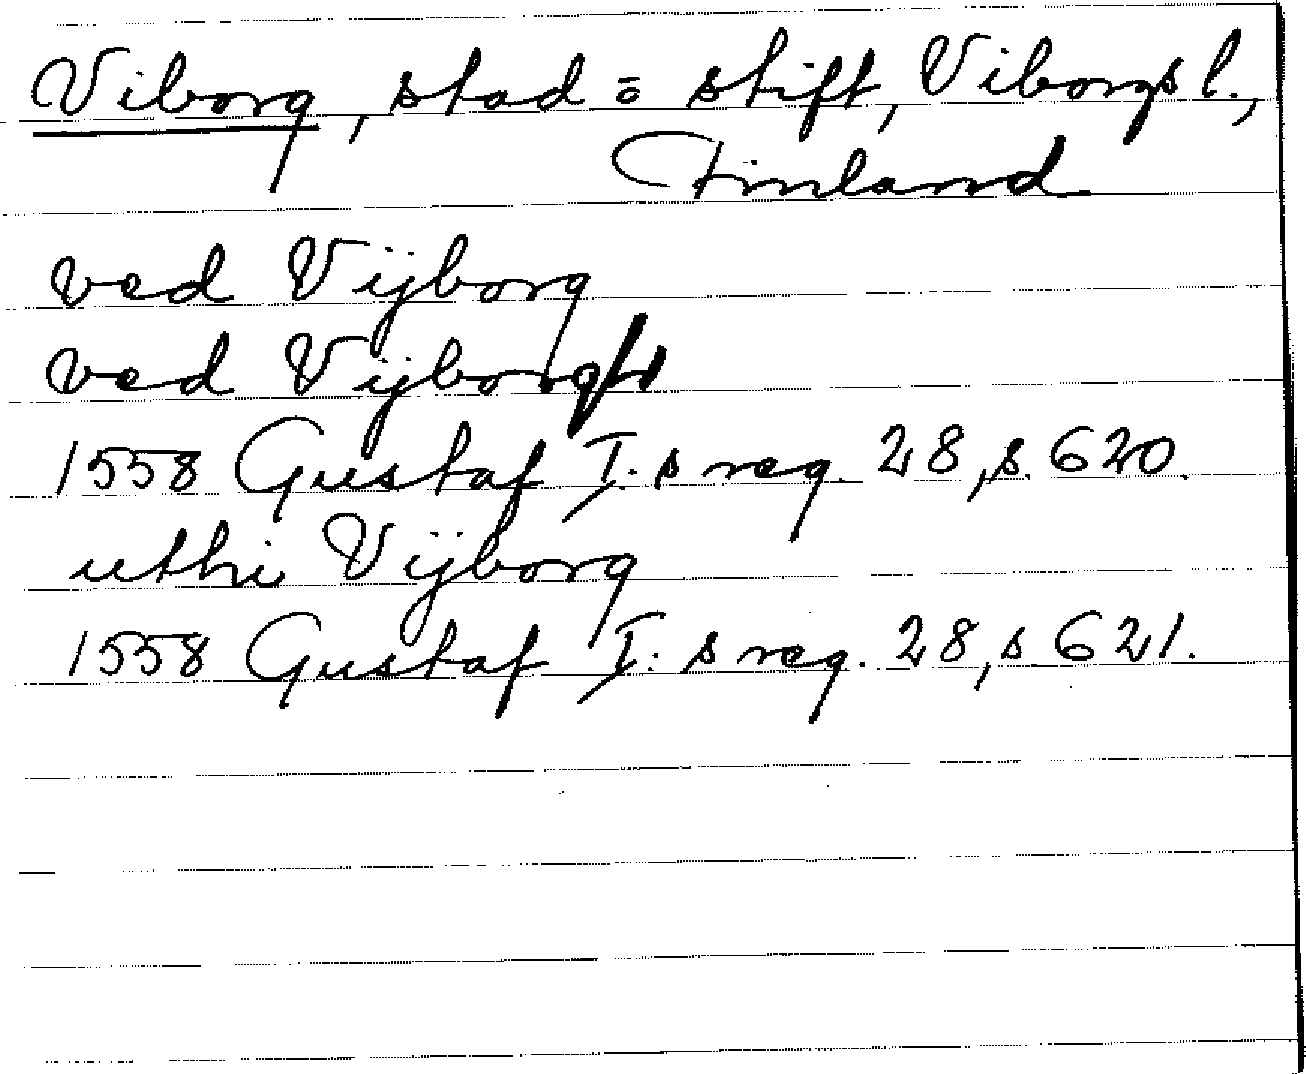 Viborg, stad = stift, Viborgs l.,
Finland
ved Vijborg
ved Vijborgh
1558 Gustaf I:s reg. 28, s. 620.
uthi Vijborg
1558 Gustaf I:s reg. 28, s 621.